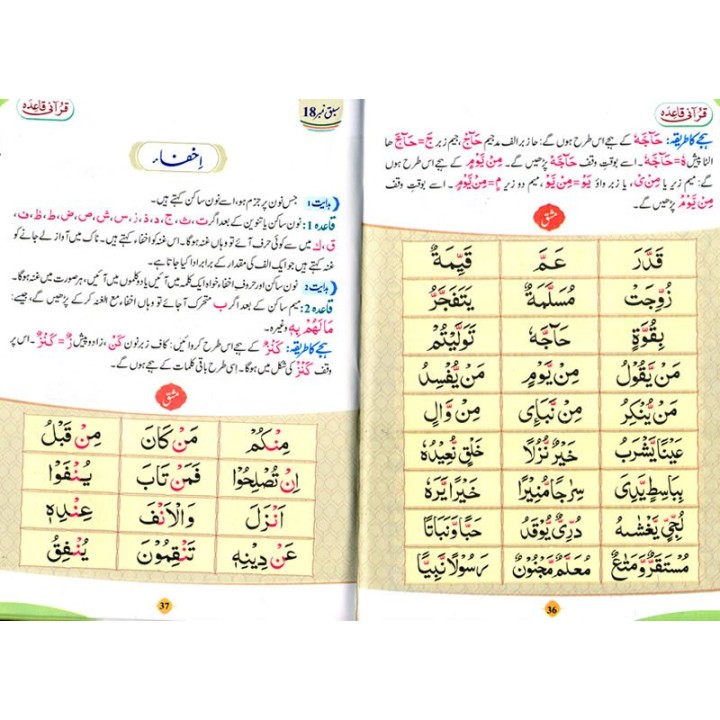 قرآنی قاعدہ
ہجے کا طریقہ: حَآجَّهٗ کے ہجے اس طرح ہوں گے: حا زبر الف مد جیم حَآجّ، جیم زبر جَ = حَآجَّ ھا
الٹا پیش هٗ = حَآجَّهٗ۔ اسے بوقتِ وقف حَآجَّهْ پڑھیں گے۔ مِنْ يَّوْمٍ کے ہجے اس طرح ہوں
گے: میم زیر یا مِنْ ی، یا زبر واؤ يَوْ = مِنْ يَّوْ، میم دو زیر مٍ = مِنْ يَّوْمٍ۔ اسے بوقتِ وقف
مِنْ يَّوْمْ پڑھیں گے۔
مشق
قَدَّرَ عَمَّ قَيِّمَةٌ
زُوِّجَتْ مُسَلَّمَةٌ يَتَفَجَّرُ
بِقُوَّةٍ حَآجَّهٗ تَوَلَّيْتُمْ
مَنْ يَّقُوْلُ مِنْ يَّوْمٍ مَنْ يُّفْسِدُ
مَنْ يُّنْكِرُ مِنْ نَّبَاِى مِنْ وَّالٍ
عَيْنًا يَّشْرَبُ خَيْرٌ نُّزُلًا خَلْقٍ نُّعِيْدُهٗ
بِبَاسِطٍ يَّدِىَ سِرَاجًا مُّنِيْرًا خَيْرًا يَّرَهٗ
لُّجِّيٍّ يَّغْشٰىهُ دُرِّىٌّ يُّوْقَدُ حَبًّا وَّنَبَاتًا
مُسْتَقَرٌّ وَّمَتَاعٌ مُعَلَّمٌ مَّجْنُوْنٌ رَسُوْلًا نَّبِيًّا
36
قرآنی قاعدہ
سبق نمبر 18
اِخفاء
ہدایت 1: جس نون پر جزم ہو، اسے نون ساکن کہتے ہیں۔
قاعدہ 1: نون ساکن یا تنوین کے بعد اگر ت، ث، ج، د، ذ، ز، س، ش، ص، ض، ط، ظ، ف،
ق، ك میں سے کوئی حرف آئے تو وہاں غنہ ہوگا۔ اس غنہ کو اخفاء کہتے ہیں۔ ناک میں آواز لے جانے کو
غنہ کہتے ہیں جو ایک الف کی مقدار کے برابر ادا کیا جاتا ہے۔
ہدایت 2: نون ساکن اور حروفِ اخفاء خواہ ایک کلمہ میں آئیں یا دو کلموں میں آئیں، ہر صورت میں غنہ ہوگا۔
قاعدہ 2: میم ساکن کے بعد اگر ب متحرک آ جائے تو وہاں اخفاء مع الغنہ کر کے پڑھیں گے، جیسے:
مَا لَهُمْ بِهٖ وغیرہ۔
ہجے کا طریقہ: كَنْزٌ کے ہجے اس طرح کروائیں: کاف زبر نون كَنْ، زا دو پیش زٌ = كَنْزٌ۔ اس پر
وقف كَنْزْ کی شکل میں ہوگا۔ اِسی طرح باقی کلمات کے ہجے ہوں گے۔
مشق
مِنْكُمْ مَنْ كَانَ مِنْ قَبْلُ
اِنْ تُصْلِحُوْا فَمَنْ تَابَ يُنْفَوْا
اَنْزَلَ وَالْاَنْفَ عِنْدِهٖ
عَنْ دِيْنِهٖ تَنْقِمُوْنَ يُنْفِقُ
37